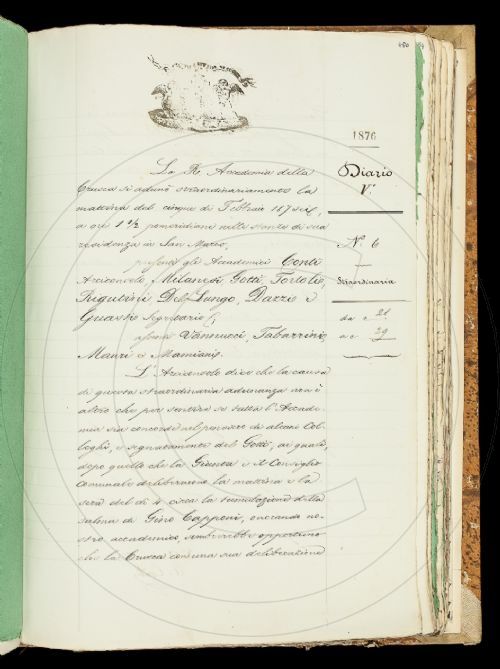 450
84
1876
Diario
V.
N. 6
Straordinaria
da c 21
a c 29
La R. Accademia della
Crusca si adunò straordinariamente la
mattina del cinque di Febbraio 1876,
a ore 1 1/2 pomeridiane nelle stanze di sua
residenza in San Marco,
presenti gli Accademici Conti
Arciconsolo, Milanesi, Gotti, Tortoli,
Rigutini, Del Lungo, Dazzi e
Guasti Segretario;
assenti Vannucci, Tabarrini,
Mauri e Mamiani.
L'Arciconsolo dice che la causa
di questa straordinaria adunanza non è
altro che per sentire se tutta l'Accade-
mia sia concorde nel pensiero di alcuni Col-
leghi, e segnatamente del Gotti, ai quali,
dopo quello che la Giunta e il Consiglio
Comunale deliberarono la mattina e la
sera del dì 4 circa la tumulazione della
salma di Gino Capponi, onorando no-
stro accademico, sembrerebbe opportuno
che la Crusca con una sua deliberazione